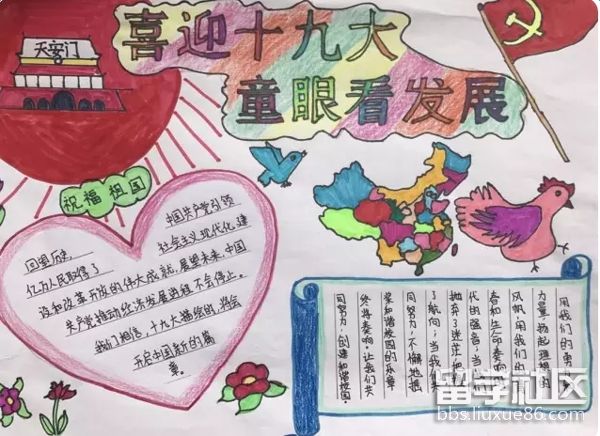 喜迎十九大
童眼看发展
天安门
祝福祖国
中国共产党引领
回望历史, 社会主义现代化建
亿万人民取得了
设和改革开放的伟大成就,展望未来,中国
共产党推动经济发展进程不会停止。
我们相信,十九大描绘的,将会
开启中国新的篇
章。
用我们的勇
力量,扬起理想的
风帆,用我们的
春和生命奏响
代的强音;当我们
抛弃了迷茫和
了航向;当我们共
同努力,不懈地拼
奖和谐校园的乐章
终将奏响。让我们共
同努力,创建和谐校园。
留学社区
bbs.liuxue86.com